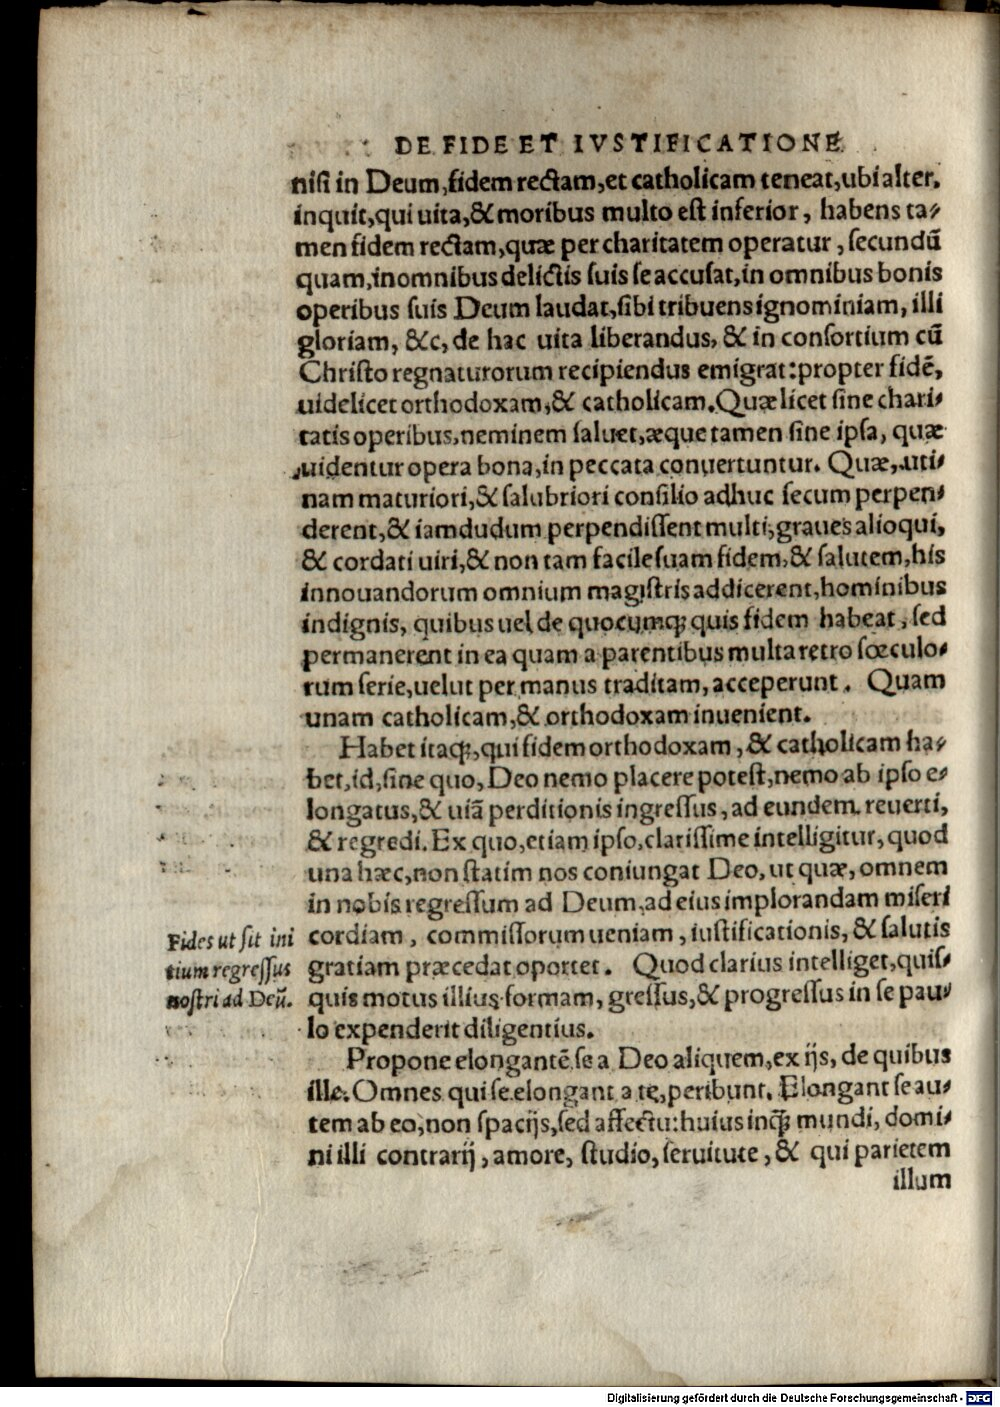 DE FIDE ET IVSTIFICATIONE
nisi in Deum, fidem rectam, et catholicam teneat, ubi alter,
inquit, qui uita, & moribus multo est inferior, habens ta-
men fidem rectam, quæ per charitatem operatur, secundũ
quam, in omnibus delictis suis se accusat, in omnibus bonis
operibus suis Deum laudat, sibi tribuens ignominiam, illi
gloriam, &c, de hac uita liberandus, & in consortium cũ
Christo regnaturorum recipiendus emigrat: propter fidẽ,
uidelicet orthodoxam, & catholicam. Quæ licet sine chari-
tatis operibus, neminem saluet, æque tamen sine ipsa, quæ
uidentur opera bona, in peccata conuertuntur. Quæ, uti-
nam maturiori, & salubriori consilio adhuc secum perpen-
derent, & iamdudum perpendissent multi, graues alioqui,
& cordati uiri, & non tam facile suam fidem, & salutem, his
innouandorum omnium magistris addicerent, hominibus
indignis, quibus uel de quocumq; quis fidem habeat, sed
permanerent in ea quam a parentibus multa retro sœculo-
rum serie, uelut per manus traditam, acceperunt. Quam
unam catholicam, & orthodoxam inuenient.
Habet itaq;, qui fidem orthodoxam, & catholicam ha-
bet, id, sine quo, Deo nemo placere potest, nemo ab ipso e-
longatus, & uiã perditionis ingressus, ad eundem reuerti,
& regredi. Ex quo, etiam ipso, clarissime intelligitur, quod
una hæc, non statim nos coniungat Deo, ut quæ, omnem
in nobis regressum ad Deum, ad eius implorandam miseri
cordiam, commissorum ueniam, iustificationis, & salutis
gratiam præcedat oportet. Quod clarius intelliget, quis-
quis motus illius formam, gressus, & progressus in se pau-
lo expenderit diligentius.
Fides ut sit ini
tium regressus
nostri ad Deũ.
Propone elongantẽ se a Deo aliquem, ex ijs, de quibus
ille. Omnes qui se elongant a te, peribunt. Elongant se au-
tem ab eo, non spacijs, sed affectu: huius inq; mundi, domi-
ni illi contrarij, amore, studio, seruitute, & qui parietem
illum
Digitalisierung gefördert durch die Deutsche Forschungsgemeinschaft - DFG